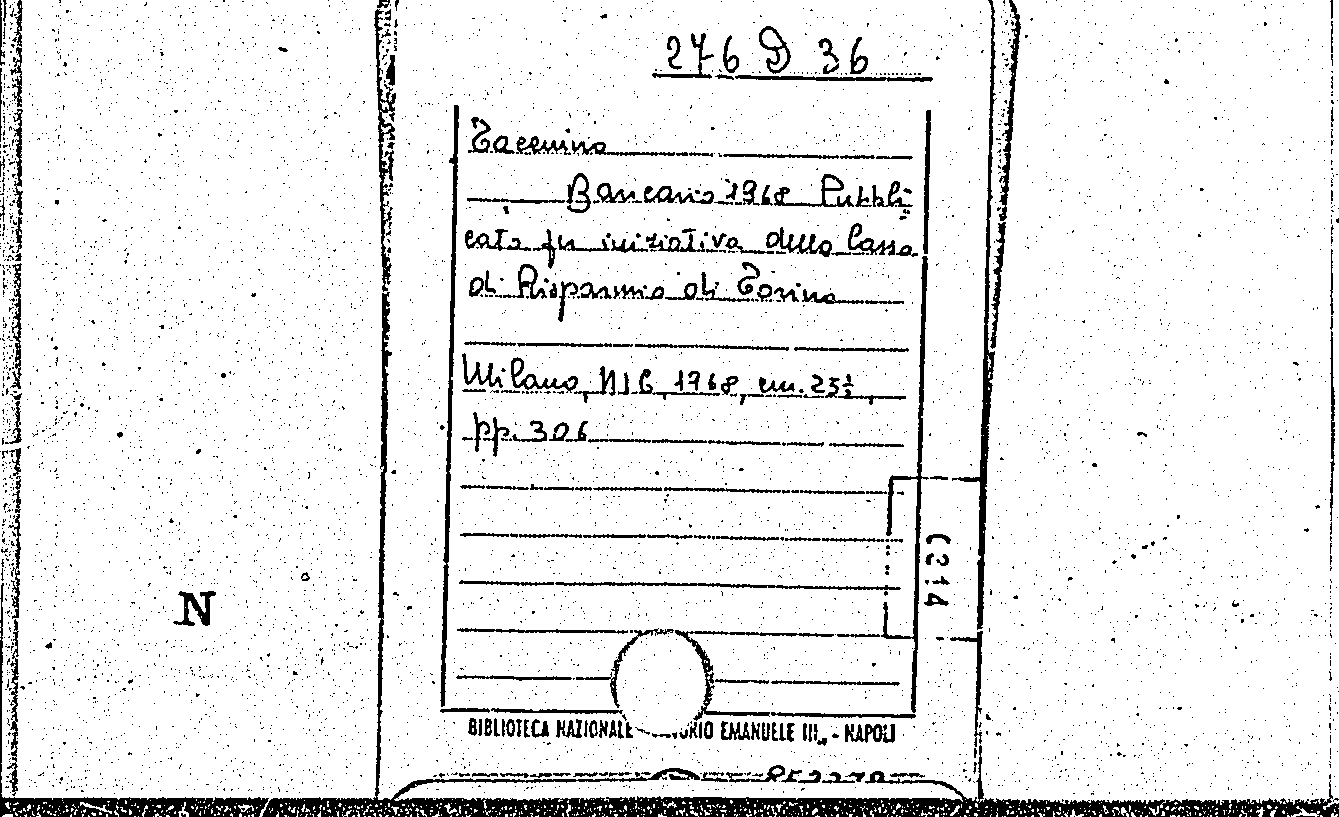 276 D 36
Taccuino
Bancario 1968 Pubbli
cato per iniziativa della Cassa
di Risparmio di Torino
Milano, NIB, 1968, cm. 23½,
pp. 306
(214
N
BIBLIOTECA NAZIONALE EMANUELE III„ - NAPOLI